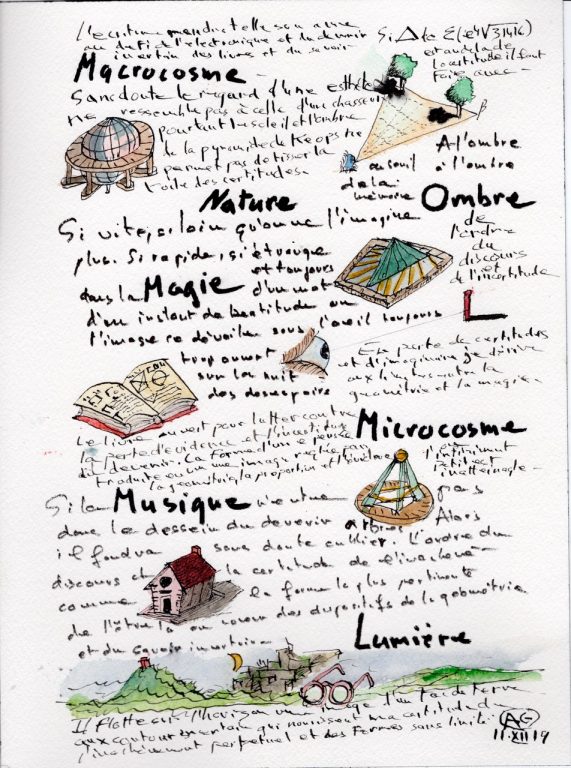 L'écriture
au defi de l'électronique et du devenir
incertain des livres et du savoir
Si Δ fc Σ( √3,1416)
et au delà de
la certitude il faut
faire avec -
Macrocosme -
Sans doute le regard d'une esthète
ne ressemble pas à celle d'un chasseur
pourtant le soleil et l'ombre
de la pyramide de Keops ne
permet pas de tisser la
toile des certitudes.
B
au seuil
de la
mémoire
A l'ombre
à l'ombre
Nature
Ombre
de
l'ordre
du
discours
et
de l'incertitude
Si vite, si loin qu'on ne l'imagine
plus. Si rapide, si étrange
et toujours
dans la Magie d'un mot
d'un instant de béatitude ou
l'image se dévoile sous l'oeil toujours
trop ouvert
sur la nuit
des desespoirs
L
En perte de certitudes
et d'imaginaire je dérive
aux entre la
géométrie et la magie -
Le livre ouvert pour lutter contre
la perte d'évidence et l'incertitude
du devenir. La forme d'une pensée
traduite en une image
la géométrie, la proportion et
Microcosme
ou
l'infiniment
petit est
inatteignable -
Si la Musique n'entre pas
dans le dessein du devenir Alors
il faudra sans doute oublier. L'ordre du
discours et la certitude de l'
comme la forme la plus pertinente
de l'être là au coeur des dispositifs de la géométrie
et du savoir incertain
Lumière
Il flotte sur l'horizon une image d'un peu de terre
aux contours incertain qui nourrissent ma certitude du
l'inachèvement perpetuel et des formes sans limite.
AG
11.XII 19